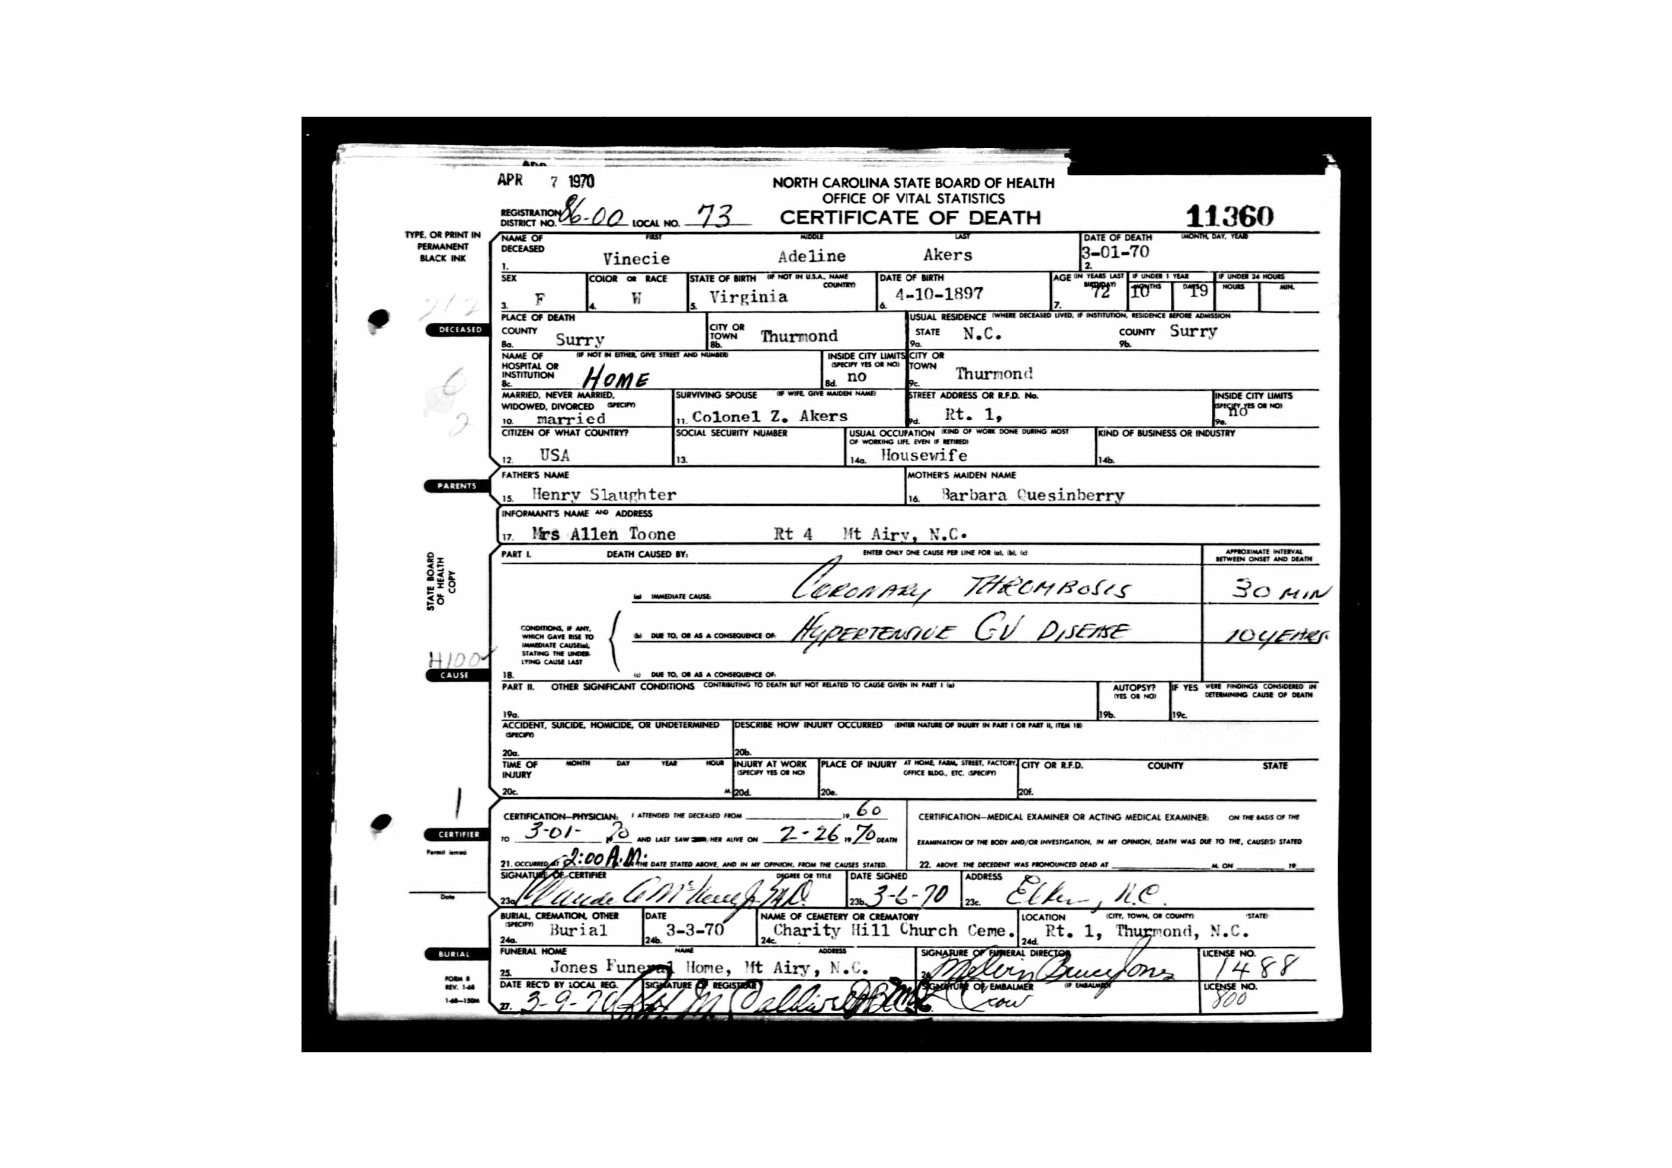 APR 7 1970
NORTH CAROLINA STATE BOARD OF HEALTH
OFFICE OF VITAL STATISTICS
REGISTRATION DISTRICT NO. 86-00 LOCAL NO. 73 CERTIFICATE OF DEATH 11360
TYPE, OR PRINT IN
PERMANENT
BLACK INK
NAME OF DECEASED FIRST MIDDLE LAST DATE OF DEATH (MONTH, DAY, YEAR)
1. Vinecie Adeline Akers 2. 3-01-70
SEX COLOR OR RACE STATE OF BIRTH (IF NOT IN U.S.A., NAME COUNTRY) DATE OF BIRTH AGE (IN YEARS LAST BIRTHDAY) IF UNDER 1 YEAR MONTHS DAYS IF UNDER 24 HOURS HOURS MIN.
3. F 4. W 5. Virginia 6. 4-10-1897 7. 72 10 19
212
DECEASED
PLACE OF DEATH USUAL RESIDENCE (WHERE DECEASED LIVED, IF INSTITUTION, RESIDENCE BEFORE ADMISSION
COUNTY 8a. Surry CITY OR TOWN 8b. Thurmond STATE 9a. N.C. COUNTY 9b. Surry
NAME OF HOSPITAL OR INSTITUTION (IF NOT IN EITHER, GIVE STREET AND NUMBER) INSIDE CITY LIMITS (SPECIFY YES OR NO) CITY OR TOWN
8c. HOME 8d. no 9c. Thurmond
6
2
MARRIED, NEVER MARRIED, WIDOWED, DIVORCED (SPECIFY) SURVIVING SPOUSE (IF WIFE, GIVE MAIDEN NAME) STREET ADDRESS OR R.F.D. No. INSIDE CITY LIMITS (SPECIFY YES OR NO)
10. married 11. Colonel Z. Akers 9d. Rt. 1, 9e. no
CITIZEN OF WHAT COUNTRY? SOCIAL SECURITY NUMBER USUAL OCCUPATION (KIND OF WORK DONE DURING MOST OF WORKING LIFE, EVEN IF RETIRED) KIND OF BUSINESS OR INDUSTRY
12. USA 13. 14a. Housewife 14b.
PARENTS
FATHER'S NAME MOTHER'S MAIDEN NAME
15. Henry Slaughter 16. Barbara Quesinberry
INFORMANT'S NAME AND ADDRESS
17. Mrs Allen Toone Rt 4 Mt Airy, N.C.
STATE BOARD
OF HEALTH
COPY
PART I. DEATH CAUSED BY: ENTER ONLY ONE CAUSE PER LINE FOR (a), (b), (c) APPROXIMATE INTERVAL BETWEEN ONSET AND DEATH
(a) IMMEDIATE CAUSE: CORONARY THROMBOSIS 30 MIN
CONDITIONS, IF ANY,
WHICH GAVE RISE TO
IMMEDIATE CAUSE(a),
STATING THE UNDER-
LYING CAUSE LAST
(b) DUE TO, OR AS A CONSEQUENCE OF: HYPERTENSIVE CV DISEASE 10 YEARS
18. (c) DUE TO, OR AS A CONSEQUENCE OF:
4100
CAUSE
PART II. OTHER SIGNIFICANT CONDITIONS CONTRIBUTING TO DEATH BUT NOT RELATED TO CAUSE GIVEN IN PART I (a) AUTOPSY? (YES OR NO) IF YES WERE FINDINGS CONSIDERED IN DETERMINING CAUSE OF DEATH
19a. 19b. 19c.
ACCIDENT, SUICIDE, HOMICIDE, OR UNDETERMINED (SPECIFY) DESCRIBE HOW INJURY OCCURRED (ENTER NATURE OF INJURY IN PART I OR PART II, ITEM 18)
20a. 20b.
TIME OF INJURY MONTH DAY YEAR HOUR INJURY AT WORK (SPECIFY YES OR NO) PLACE OF INJURY AT HOME, FARM, STREET, FACTORY, OFFICE BLDG., ETC. (SPECIFY) CITY OR R.F.D. COUNTY STATE
20c. M. 20d. 20e. 20f.
1
CERTIFIER
Permit issued
Date
CERTIFICATION—PHYSICIAN: I ATTENDED THE DECEASED FROM 19 60
TO 3-01- 19 70 AND LAST SAW HER ALIVE ON 2-26 19 70 DEATH
21. OCCURRED AT 2:00 A.M. THE DATE STATED ABOVE, AND IN MY OPINION, FROM THE CAUSES STATED.
CERTIFICATION—MEDICAL EXAMINER OR ACTING MEDICAL EXAMINER: ON THE BASIS OF THE
EXAMINATION OF THE BODY AND/OR INVESTIGATION, IN MY OPINION, DEATH WAS DUE TO THE, CAUSE(S) STATED
22. ABOVE. THE DECEDENT WAS PRONOUNCED DEAD AT M. ON 19
SIGNATURE OF CERTIFIER DEGREE OR TITLE DATE SIGNED ADDRESS
23a. Claude M.D. 23b. 3-6-70 23c. Elkin, N.C.
BURIAL
BURIAL, CREMATION, OTHER (SPECIFY) DATE NAME OF CEMETERY OR CREMATORY LOCATION (CITY, TOWN, OR COUNTY) (STATE)
24a. Burial 24b. 3-3-70 24c. Charity Hill Church Ceme. 24d. Rt. 1, Thurmond, N.C.
FUNERAL HOME NAME ADDRESS SIGNATURE OF FUNERAL DIRECTOR LICENSE NO.
25. Jones Funeral Home, Mt Airy, N.C. 26. Melvin Bruce Jones 1488
DATE REC'D BY LOCAL REG. SIGNATURE OF REGISTRAR SIGNATURE OF EMBALMER (IF EMBALMED) LICENSE NO.
27. 3-9-70 800
FORM 8
REV. 1-68
1-68—150M